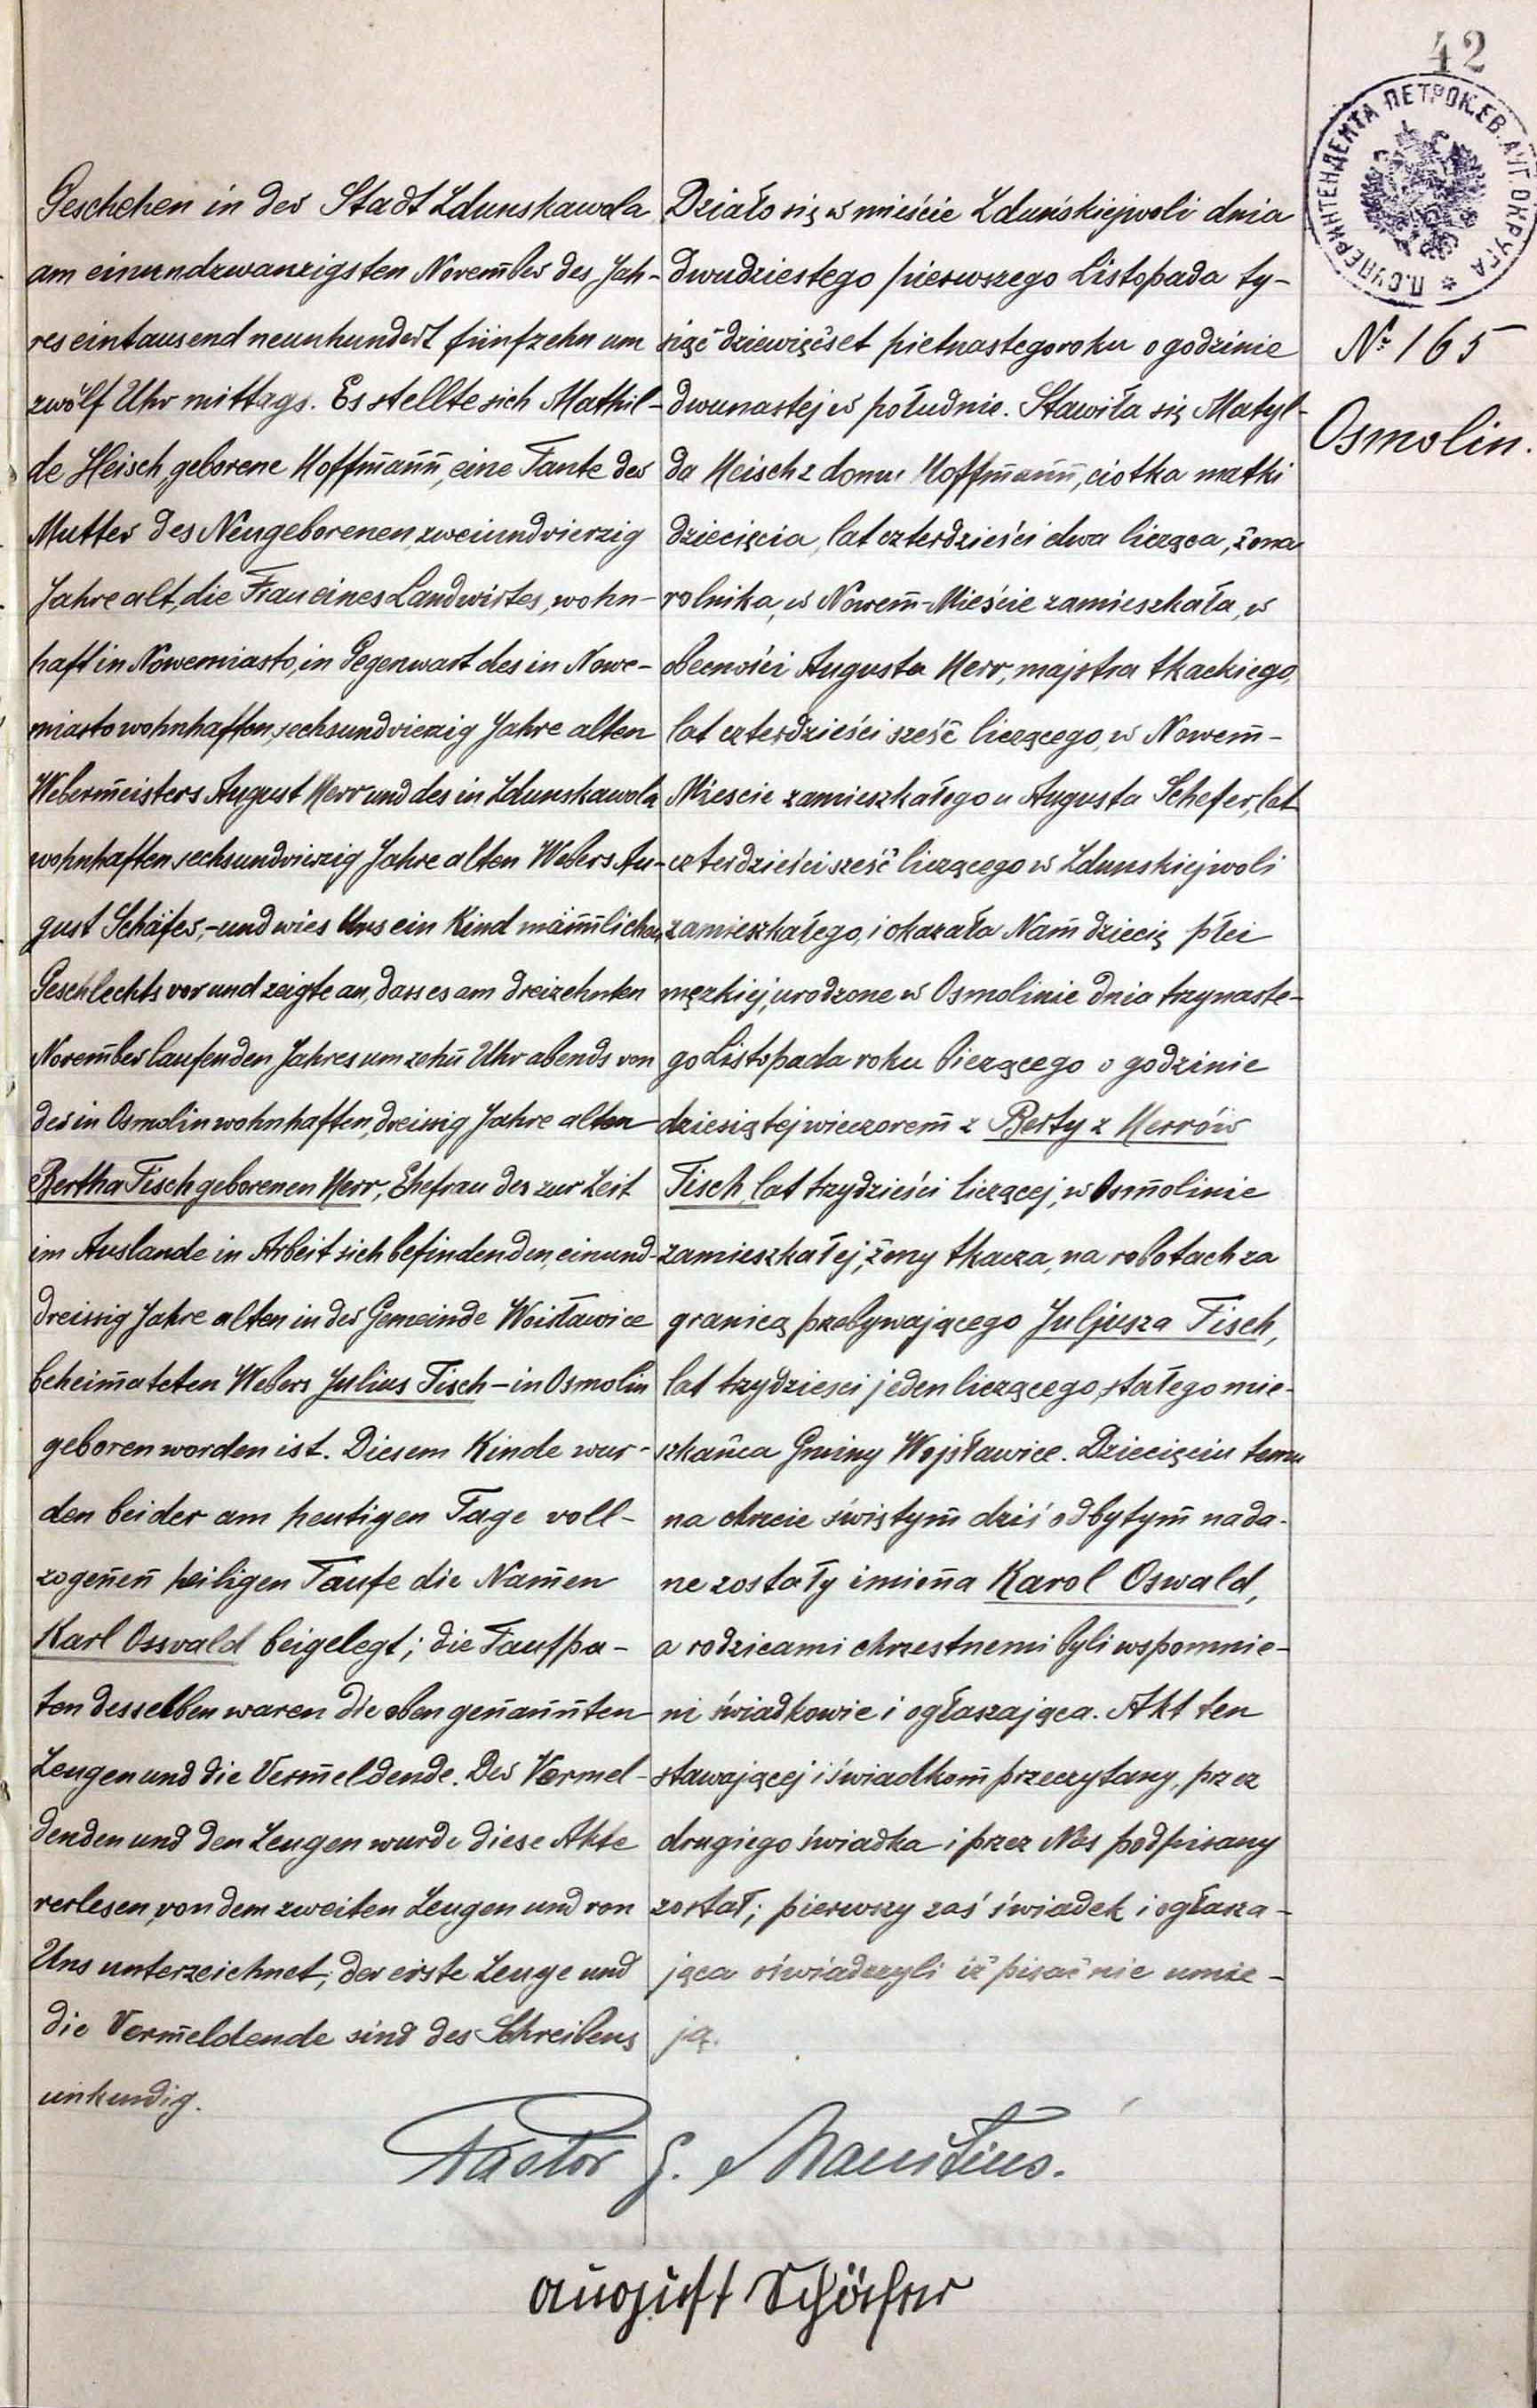 42
П. СУПЕРИНТЕНДЕНТА ПЕТРОК. ЕВ. АУГ. ОКРУГА *
Nº 165
Osmolin.
Geschehen in der Stadt Zdunskawola
am einundzwanzigsten November des Jah-
res eintausend neunhundert fünfzehn um
zwölf Uhr mittags. Es stellte sich Mathil-
de Heisch, geborene Hoffmann, eine Tante der
Mutter des Neugeborenen, zweiundvierzig
Jahre alt, die Frau eines Landwirtes, wohn-
haft in Nowemiasto, in Gegenwart des in Nowe-
miasto wohnhaften, sechsundvierzig Jahre alten
Webermeisters August Herr und des in Zdunskawola
wohnhaften, sechsundvierzig Jahre alten Webers Au-
gust Schäfer,- und wies Uns ein Kind männlichen
Geschlechts vor und zeigte an, dass es am dreizehnten
November laufenden Jahres um zehn Uhr abends von
der in Osmolin wohnhaften, dreissig Jahre alten
Bertha Fisch geborenen Herr, Ehefrau des zur Zeit
im Auslande in Arbeit sich befindenden, einund-
dreissig Jahre alten in der Gemeinde Woisławice
beheimateten Webers Julius Fisch - in Osmolin
geboren worden ist. Diesem Kinde wur-
den bei der am heutigen Tage voll-
zogenen heiligen Taufe die Namen
Karl Osvald beigelegt; die Taufpa-
ten desselben waren die oben genannten
Zeugen und die Vermeldende. Der Vermel-
denden und den Zeugen wurde diese Akte
verlesen, von dem zweiten Zeugen und von
Uns unterzeichnet; der erste Zeuge und
die Vermeldende sind des Schreibens
unkundig.
Działo się w mieście Zduńskiejwoli dnia
dwudziestego pierwszego Listopada ty-
siąc dziewięćset piętnastego roku o godzinie
dwunastej w południe. Stawiła się Matyl-
da Heisch z domu Hoffmann, ciotka matki
dziecięcia, lat czterdzieści dwa licząca, żona
rolnika, w Nowem-Mieście zamieszkała, w
obecności Augusta Herr, majstra tkackiego,
lat czterdzieści sześć liczącego, w Nowem-
Miescie zamieszkałego u Augusta Schefer, lat
czterdzieści sześć liczącego w Zdunskiejwoli
zamieszkałego, i okazała Nam dziecię płci
męzkiej, urodzone w Osmolinie dnia trzynaste-
go Listopada roku bieżącego o godzinie
dziesiątej wieczorem z Berty z Herrów
Fisch, lat trzydzieści liczącej, w Osmolinie
zamieszkałej, żony tkacza, na robotach za
granicą przebywającego Juljusza Fisch,
lat trzydziesci jeden liczącego, stałego mie-
szkańca Gminy Wojsławice. Dziecięciu temu
na chrzcie świętym dziś odbytym nada-
ne zostały imiona Karol Oswald,
a rodzicami chrzestnemi byli wspomnie-
ni świadkowie i ogłaszająca. Akt ten
stawającej i świadkom przeczytany, przez
drugiego świadka i przez Nas podpisany
został; pierwszy zaś świadek i ogłasza-
jąca oświadczyli iż pisać nie umie-
ją.
Pastor G. Manitius.
August Schäfer